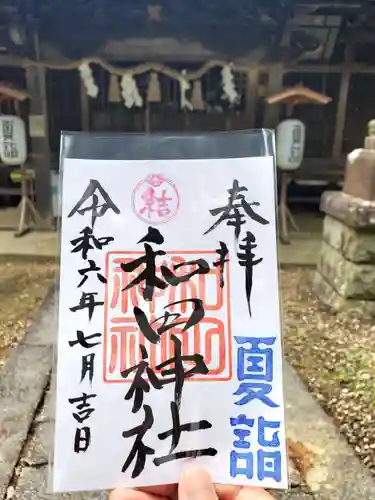 奉拝
夏詣
和田神社
和田
神社
結
令和六年七月吉日